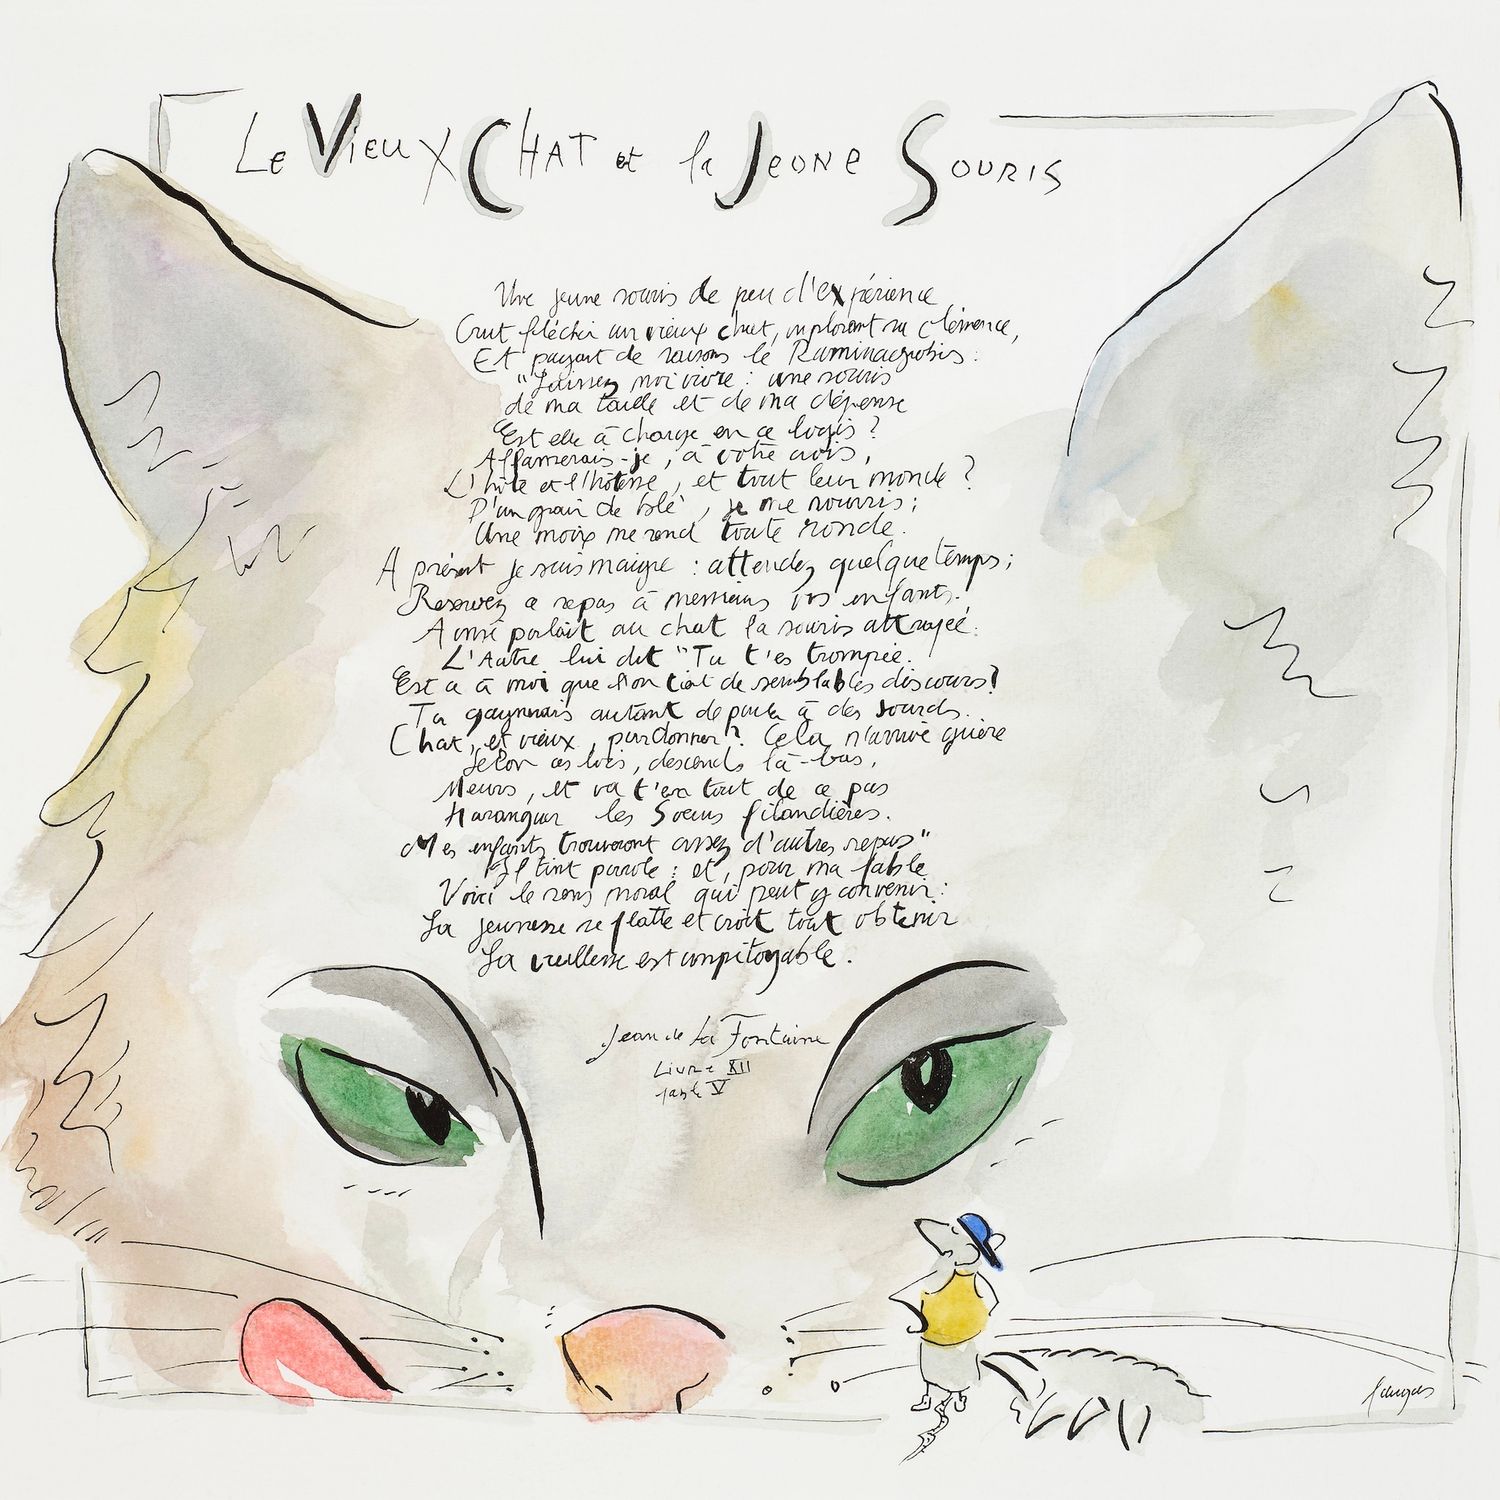 Le Vieux Chat et la Jeune Souris
Une jeune souris de peu d'expérience
Crut fléchir un vieux chat, implorant sa clémence,
Et payant de raisons le Raminagrobis :
"Laissez moi vivre : une souris
de ma taille et de ma dépense
Est elle à charge en ce logis ?
Affamerais-je, à votre avis,
L'hôte et l'hôtesse, et tout leur monde ?
D'un grain de blé, je me nourris ;
Une noix me rend toute ronde.
A présent je suis maigre : attendez quelque temps ;
Reservez ce repas à messieurs vos enfants.
Ainsi parlait au chat la souris attrapée.
L'Autre lui dit "Tu t'es trompée.
Est ce à moi que l'on tient de semblables discours ?
Tu gagnerais autant de parler à des sourds.
Chat, et vieux, pardonner ? Cela n'arrive guère
Selon ces lois, descends là-bas,
Meurs, et va t'en tout de ce pas
Haranguer les Soeurs filandières.
Mes enfants trouveront assez d'autres repas"
Il tint parole : et, pour ma fable
Voici le sens moral qui peut y convenir :
La jeunesse se flatte et croit tout obtenir
La vieillesse est impitoyable.
Jean de La Fontaine
Livre XII
fable V